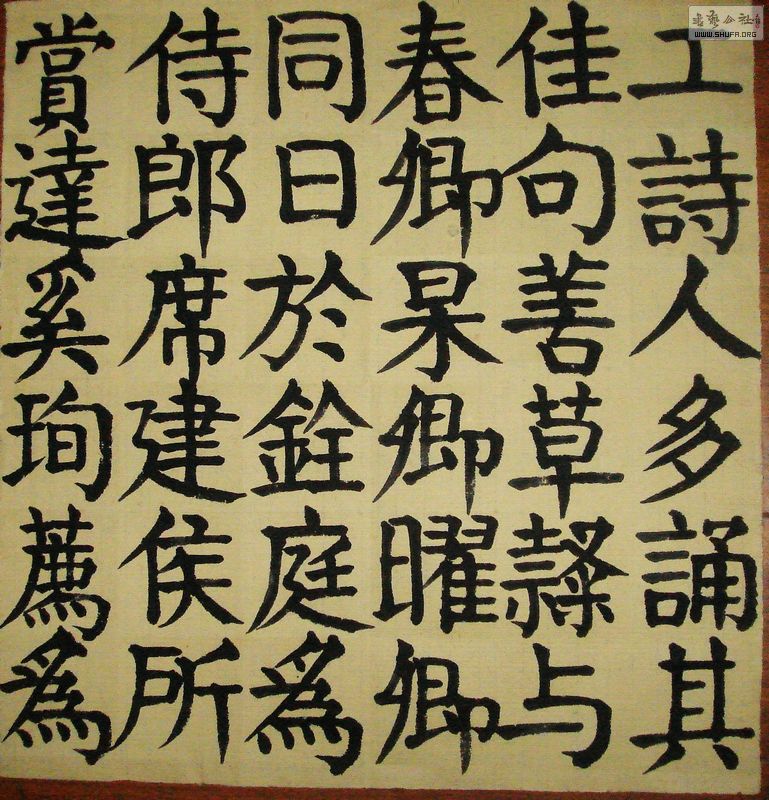 工詩人多誦其
佳句善草隸与
春卿杲卿曜卿
同日於銓庭為
侍郎席建侯所
賞達奚珣薦為
書藝公社
WWW.SHUFA.ORG